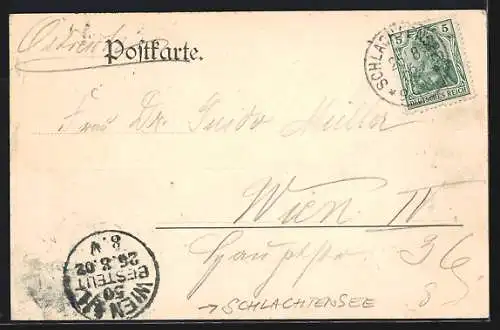 Postkarte.
5 5
DEUTSCHES REICH
Frau Dr. Guido Müller
Wien IV.
Hauptstr. 36
8
WIEN
50
BESTELLT
26.8.02
8.V
→ SCHLACHTENSEE